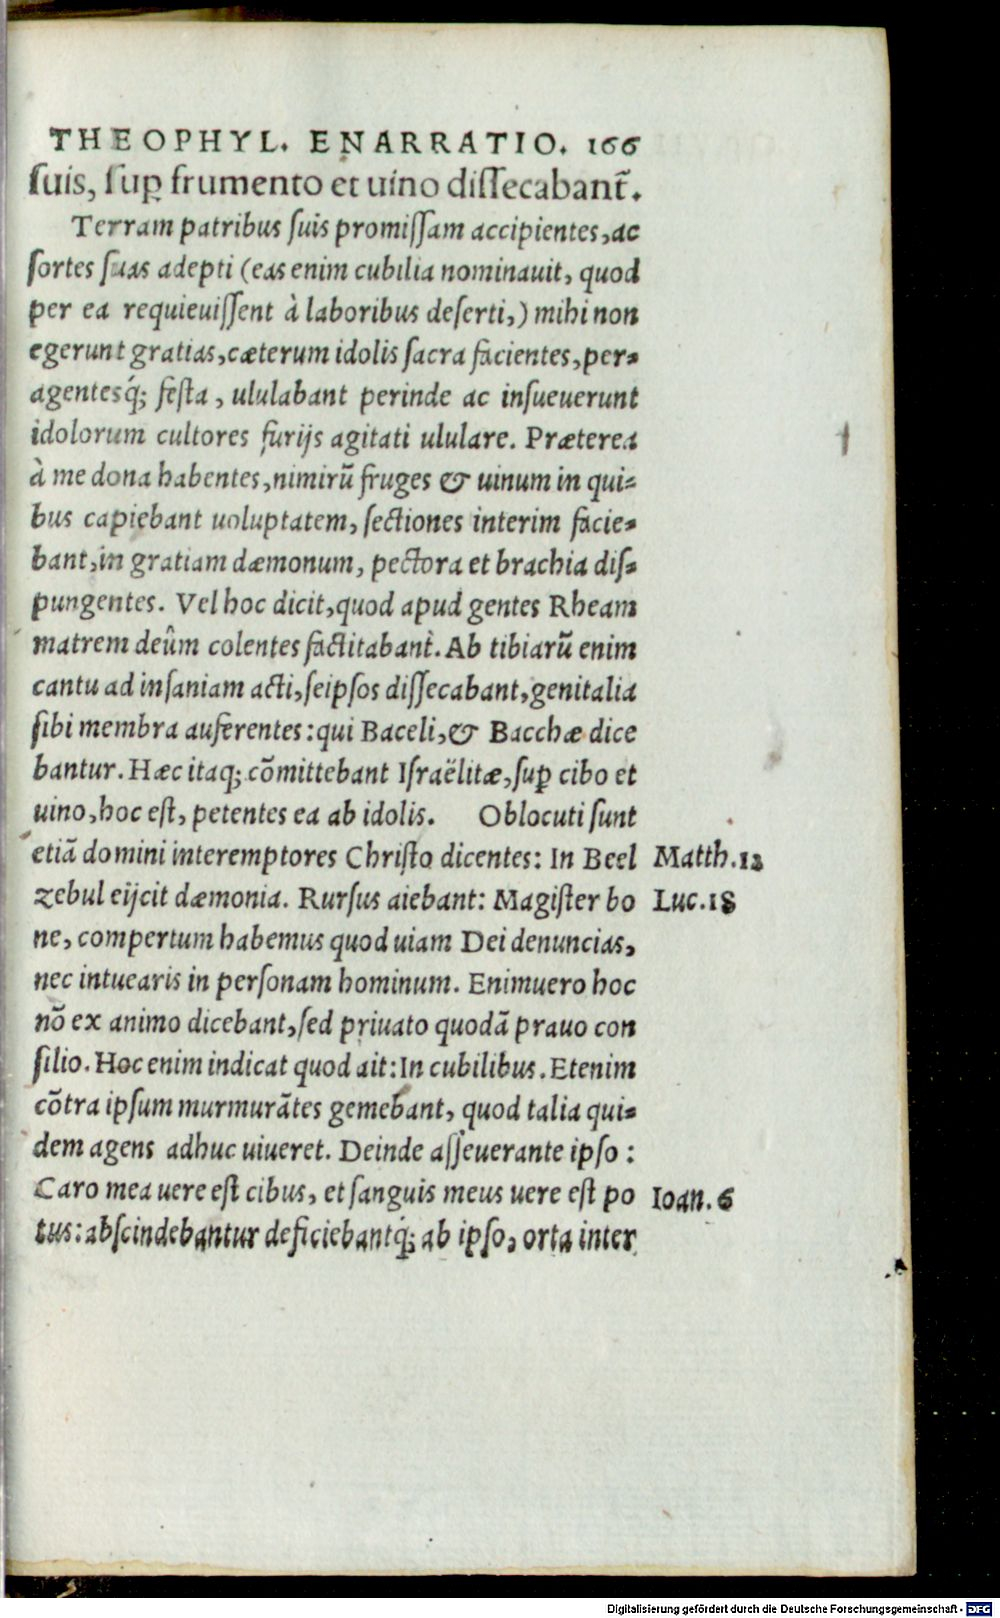 THEOPHYL. ENARRATIO. 166
ſuis, ſuꝑ frumento et uino diſſecabant̃.
Terram patribus ſuis promiſſam accipientes, ac
ſortes ſuas adepti (eas enim cubilia nominauit, quod
per ea requieuiſſent à laboribus deſerti,) mihi non
egerunt gratias, cæterum idolis ſacra facientes, per-
agentesq́; feſta, ululabant perinde ac inſueuerunt
idolorum cultores furijs agitati ululare. Præterea
à me dona habentes, nimirũ fruges & uinum in qui-
bus capiebant uoluptatem, ſectiones interim facie-
bant, in gratiam dæmonum, pectora et brachia diſ-
pungentes. Vel hoc dicit, quod apud gentes Rheam
matrem deûm colentes factitabant. Ab tibiarũ enim
cantu ad inſaniam acti, ſeipſos diſſecabant, genitalia
ſibi membra auferentes: qui Baceli, & Bacchæ dice
bantur. Hæc itaq; cõmittebant Iſraëlitæ, ſuꝑ cibo et
uino, hoc eſt, petentes ea ab idolis. Oblocuti ſunt
etiã domini interemptores Chriſto dicentes: In Beel
Matth. 12
zebul eijcit dæmonia. Rurſus aiebant: Magiſter bo
Luc. 18
ne, compertum habemus quod uiam Dei denuncias,
nec intuearis in perſonam hominum. Enimuero hoc
nõ ex animo dicebant, ſed priuato quodã prauo con
ſilio. Hoc enim indicat quod ait: In cubilibus. Etenim
cõtra ipſum murmurãtes gemebant, quod talia qui-
dem agens adhuc uiueret. Deinde aſſeuerante ipſo:
Caro mea uere eſt cibus, et ſanguis meus uere eſt po
Ioan. 6
tus: abſcindebantur deficiebantq́; ab ipſo, orta inter
Digitalisierung gefördert durch die Deutsche Forschungsgemeinschaft - DFG